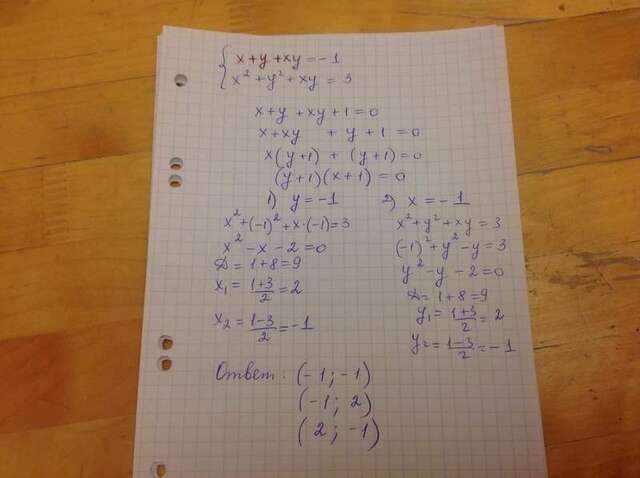 { x + y + xy = -1
x² + y² + xy = 3
x + y + xy + 1 = 0
x + xy + y + 1 = 0
x(y+1) + (y+1) = 0
(y+1)(x+1) = 0
1) y = -1
x² + (-1)² + x·(-1) = 3
x² - x - 2 = 0
D = 1+8 = 9
x₁ = (1+3)/2 = 2
x₂ = (1-3)/2 = -1
2) x = -1
x² + y² + xy = 3
(-1)² + y² - y = 3
y² - y - 2 = 0
D = 1+8 = 9
y₁ = (1+3)/2 = 2
y₂ = (1-3)/2 = -1
Ответ: (-1; -1)
(-1; 2)
(2; -1)